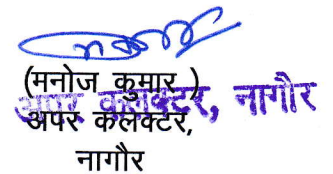 (मनोज कुमार )
अपर कलक्टर, नागौर
अपर कलेक्टर,
नागौर